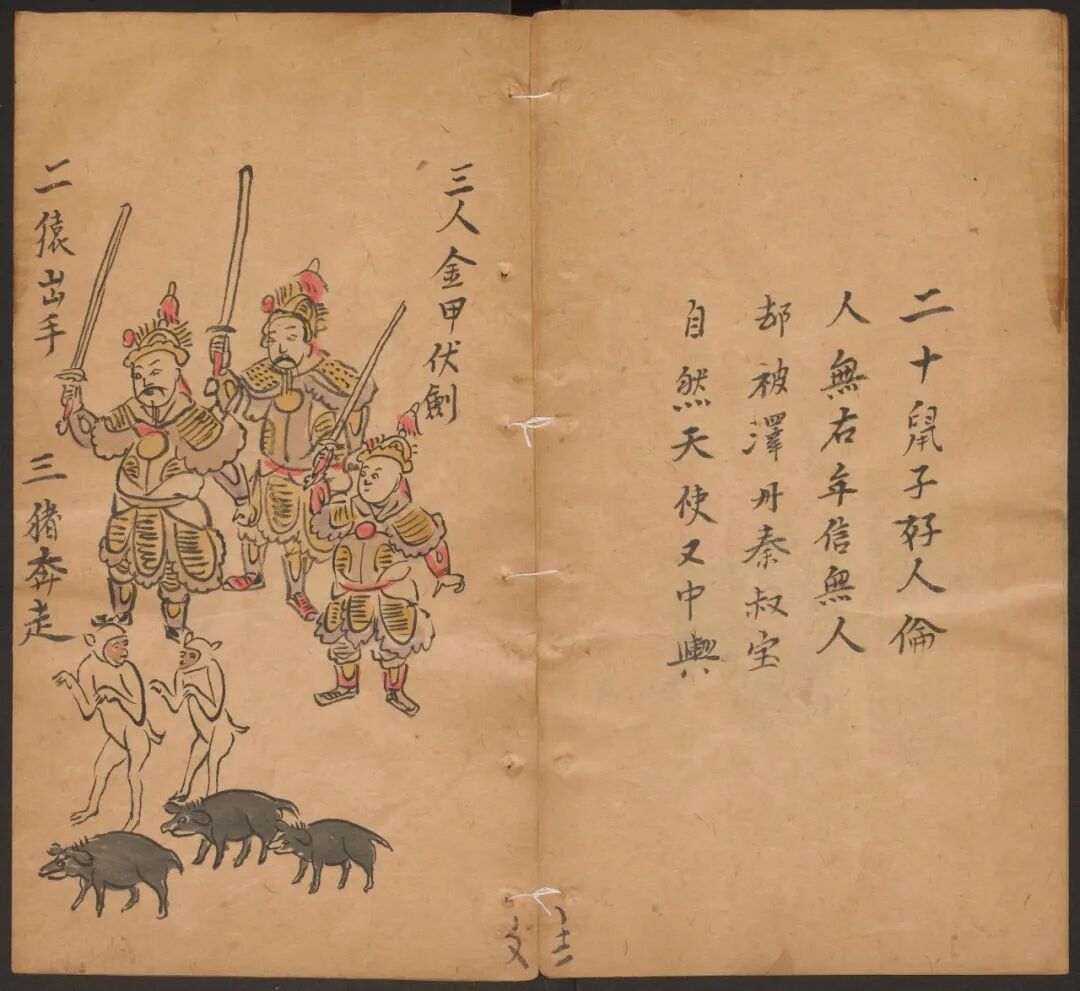 二十鼠子好人倫
人無右年信無人
却被澤丹秦叔宝
自然天使又中興
三人金甲伏劍
二猿出手
三猪奔走